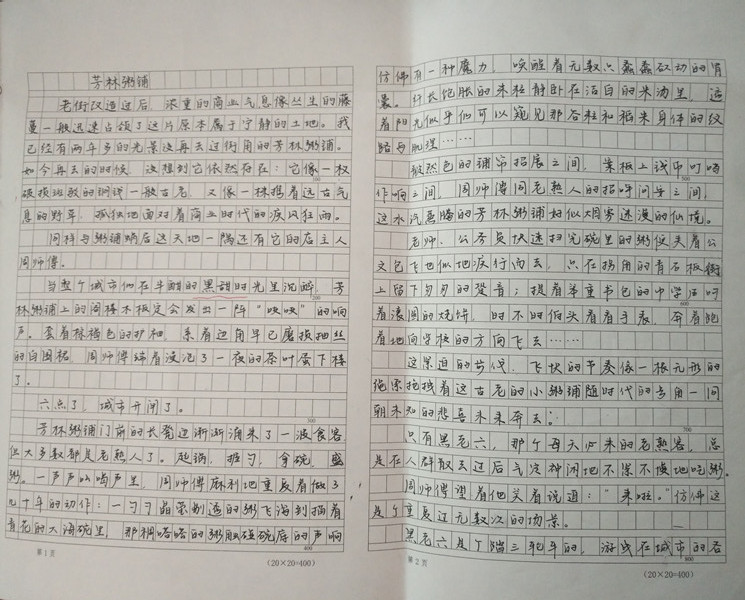 芳林粥铺
老街改造过后，浓重的商业气息像丛生的藤
蔓一般迅速占领了这片原本属于宁静的土地。我
已经有两年多的光景没再去过街角的芳林粥铺。
如今再去的时候，没想到它依然存在：它像一枚
破损斑驳的铜钱一般古老，又像一株携着远古气
息的野草，孤独地面对着商业时代的疾风狂雨。
同样与粥铺蜗居这天地一隅还有它的店主人
周师傅。
当整个城市们在半酣的黑甜的光里沉醉，芳
林粥铺上的阁楼木板定会发出一阵“吱吱”的响
声。套着棕褐色的护袖，系着边角早已磨损抽丝
的白围裙，周师傅端着浸泡了一夜的茶叶蛋下楼
了。
六点了，城市开闸了。
芳林粥铺门前的长凳边渐渐涌来了一波食客
但大多数都是老熟人了。起锅，抵勺，拿碗，盛
粥。一声声吆喝声里，周师傅麻利地重复着做了
几十年的动作：一勺勺晶莹剔透的粥飞海到描着
青花的大海碗里，那稠嗒嗒的粥触碰碗底的声响
第1页
(20×20=400)
仿佛有一种魔力，唤醒着无数只蠢蠢欲动的胃
囊。纤长饱胀的米粒静卧在洁白的米汤里，迎
着阳光似乎们可以窥见那谷粒和稻米身体的纹
路与肌理……
色的铺帘招展之间，案板上钱币叮当
作响之间，周师傅同老熟人的招呼问候之间，
这水汽蒸腾的芳林粥铺好似烟雾迷漫的仙境。
老师、公务员快速扫完碗里的粥便夹着公
文包飞也似地疾行而去，只在拐角的青石板街
上留下匆匆的跫音；提着笨重书包的中学生叼
着滚圆的烧饼，时不时低头看看手表，奔着跑
着地向学校的方向飞去……
这紧迫的步伐，飞快的节奏像一根无形的
绳索拖拽着这古老的小粥铺随时代的步角一同
朝未知的悲喜未来奔去。
只有黑老六，那个每天必来的老熟客，总
是在人群散去过后气定神闲地不紧不慢地吃粥。
周师傅望着他笑着说道：“来啦。”仿佛这
是个重复过无数次的场景。
黑老六是个踹三轮车的，游戏在城市的各
第2页
(20×20=400)